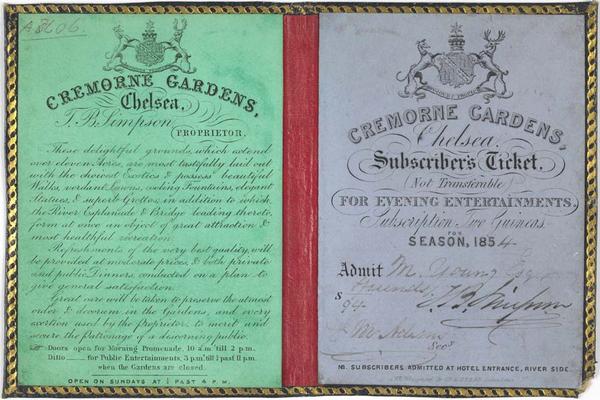 A 8606.
CREMORNE GARDENS,
Chelsea,
T. B. Simpson,
PROPRIETOR.
These delightful grounds, which extend
over eleven Acres, are most tastefully laid out
with the choicest Exotics & possess beautiful
Walks, verdant Lawns, cooling Fountains, elegant
Statues, & superb Grottos, in addition to which
the River Esplanade & Bridge leading thereto,
form at once an object of great attraction &
most healthful recreation.
Refreshments of the very best quality, will
be provided at moderate prices, & both private
and public Dinners, conducted on a plan to
give general satisfaction.
Great care will be taken to preserve the utmost
order & decorum in the Gardens, and every
exertion used by the proprietor, to merit and
secure the Patronage of a discerning public.
Doors open for Morning Promenade, 10 a.m. till 2 p.m.
Ditto for Public Entertainments, 3 p.m. till ½ past 11 p.m.
when the Gardens are closed.
OPEN ON SUNDAYS AT ½ PAST 4 P.M.
CREMORNE GARDENS,
Chelsea
Subscriber's Ticket,
Not Transferable
FOR EVENING ENTERTAINMENTS,
Subscription Two Guineas
FOR
SEASON, 1854
Admit M. Young Esq
T. B. Simpson
94
Secy
NB. SUBSCRIBERS ADMITTED AT HOTEL ENTRANCE, RIVER SIDE.